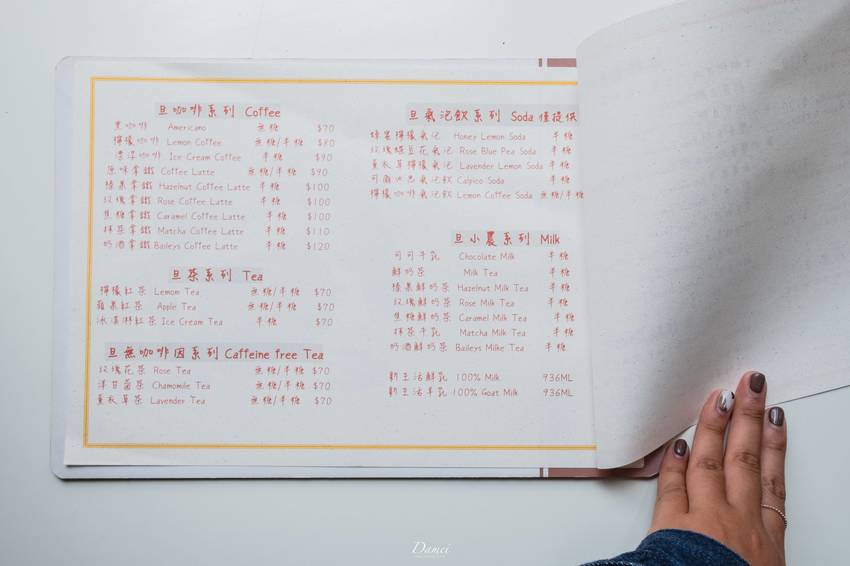 旦咖啡系列 Coffee
黑咖啡 Americano 無糖 $70
檸檬咖啡 Lemon Coffee 無糖/半糖 $80
漂浮咖啡 Ice Cream Coffee 半糖 $90
原味拿鐵 Coffee Latte 無糖/半糖 $90
榛果拿鐵 Hazelnut Coffee Latte 半糖 $100
玫瑰拿鐵 Rose Coffee Latte 半糖 $100
焦糖拿鐵 Caramel Coffee Latte 半糖 $100
抹茶拿鐵 Matcha Coffee Latte 半糖 $110
奶酒拿鐵 Baileys Coffee Latte 半糖 $120
旦茶系列 Tea
檸檬紅茶 Lemon Tea 無糖/半糖 $70
蘋果紅茶 Apple Tea 無糖/半糖 $70
冰淇淋紅茶 Ice Cream Tea 半糖 $70
旦無咖啡因系列 Caffeine free Tea
玫瑰花茶 Rose Tea 無糖/半糖 $70
洋甘菊茶 Chamomile Tea 無糖/半糖 $70
薰衣草茶 Lavender Tea 無糖/半糖 $70
旦氣泡飲系列 Soda 僅提供
蜂蜜檸檬氣泡 Honey Lemon Soda 半糖
玫瑰蝶豆花氣泡 Rose Blue Pea Soda 半糖
薰衣草檸檬氣泡 Lavender Lemon Soda 半糖
可爾必思氣泡飲 Calpico Soda 半糖
檸檬咖啡氣泡飲 Lemon Coffee Soda 無糖/半糖
旦小農系列 Milk
可可牛乳 Chocolate Milk 半糖
鮮奶茶 Milk Tea 半糖
榛果鮮奶茶 Hazelnut Milk Tea 半糖
玫瑰鮮奶茶 Rose Milk Tea 半糖
焦糖鮮奶茶 Caramel Milk Tea 半糖
抹茶牛乳 Matcha Milk Tea 半糖
奶酒鮮奶茶 Baileys Milke Tea 半糖
初旦活鮮乳 100% Milk 936ML
初旦活羊乳 100% Goat Milk 936ML
Damei